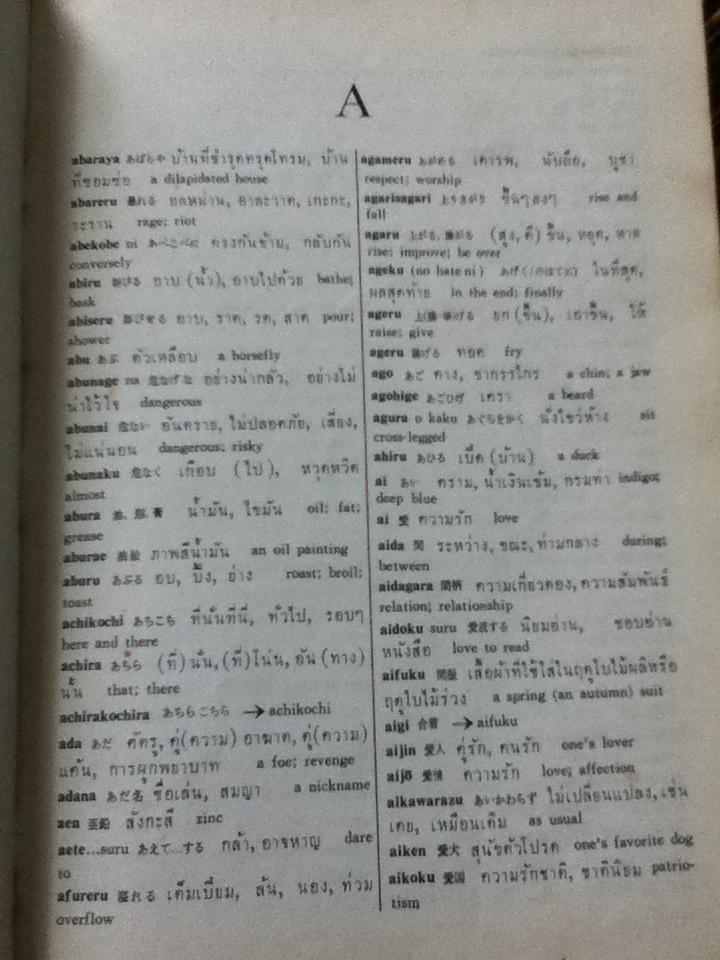 A
abaraya あばらや บ้านที่ชำรุดทรุดโทรม, บ้าน
ที่ซอมซ่อ a dilapidated house
abareru 暴れる อลหม่าน, อาละวาด, เกะกะ,
ระราน rage; riot
abekobe ni あべこべに ตรงกันข้าม, กลับกัน
conversely
abiru あびる อาบ (น้ำ), อาบไปด้วย bathe;
bask
abiseru 浴びせる อาบ, ราด, รด, สาด pour;
shower
abu あぶ ตัวเหลือบ a horsefly
abunage na 危なげな อย่างน่ากลัว, อย่างไม่
น่าไว้ใจ dangerous
abunai 危ない อันตราย, ไม่ปลอดภัย, เสี่ยง,
ไม่แน่นอน dangerous; risky
abunaku 危なく เกือบ (ไป), หวุดหวิด
almost
abura 油, 脂, 膏 น้ำมัน, ไขมัน oil; fat;
grease
aburae 油絵 ภาพสีน้ำมัน an oil painting
aburu あぶる อบ, ปิ้ง, ย่าง roast; broil;
toast
achikochi あちこち ที่นั่นที่นี่, ทั่วไป, รอบๆ
here and there
achira あちら (ที่) นั่น, (ที่) โน่น, อัน (ทาง)
นั้น that; there
achirakochira あちらこちら → achikochi
ada あだ ศัตรู, คู่(ความ) อาฆาต, คู่(ความ)
แค้น, การผูกพยาบาท a foe; revenge
adana あだ名 ชื่อเล่น, สมญา a nickname
aen 亜鉛 สังกะสี zinc
aete...suru あえて...する กล้า, อาจหาญ dare
to
afureru 溢れる เต็มเปี่ยม, ล้น, นอง, ท่วม
overflow
agameru あがめる เคารพ, นับถือ, บูชา
respect; worship
agarisagari 上り下がり ขึ้นๆลงๆ rise and
fall
agaru 上がる, 揚がる (สูง, ดี) ขึ้น, หยุด, หาย
rise; improve; be over
ageku (no hate ni) あげく(のはてに) ในที่สุด,
ผลสุดท้าย in the end; finally
ageru 上げる ยก (ขึ้น), เอาขึ้น, ให้
raise; give
ageru 揚げる ทอด fry
ago あご คาง, ขากรรไกร a chin; a jaw
agohige あごひげ เครา a beard
agura o kaku あぐらをかく นั่งไขว่ห้าง sit
cross-legged
ahiru あひる เป็ด (บ้าน) a duck
ai あい คราม, น้ำเงินเข้ม, กรมท่า indigo;
deep blue
ai 愛 ความรัก love
aida 間 ระหว่าง, ขณะ, ท่ามกลาง during;
between
aidagara 間柄 ความเกี่ยวดอง, ความสัมพันธ์
relation; relationship
aidoku suru 愛読する นิยมอ่าน, ชอบอ่าน
หนังสือ love to read
aifuku 間服 เสื้อผ้าที่ใช้ใส่ในฤดูใบไม้ผลิหรือ
ฤดูใบไม้ร่วง a spring (an autumn) suit
aigi 合着 → aifuku
aijin 愛人 คู่รัก, คนรัก one's lover
aijō 愛情 ความรัก love; affection
aikawarazu あいかわらず ไม่เปลี่ยนแปลง, เช่น
เคย, เหมือนเดิม as usual
aiken 愛犬 สุนัขตัวโปรด one's favorite dog
aikoku 愛国 ความรักชาติ, ชาตินิยม patrio-
tism